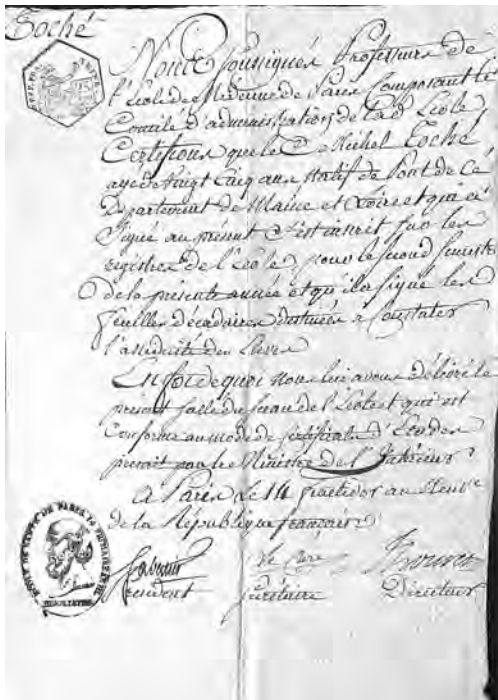 Toché
Nous soussignés Professeurs de
l'école de Médecine de Paris Composant le
Comité d'administration de lad. Ecole
Certifions que le C. Michel Toché
agé de Vingt Cinq ans Natif de Pont de Cé
Département de Maine et Loire et qui a
Signé au présent S'est inscrit sur les
registres de l'école, pour le second semestre
de la présente année et qu'il a signé les
feuilles décadaires destinées a Constater
l'assiduité des Eleves
En foi de quoi nous lui avons délivré le
présent scellé du sceau de l'Ecole et qui est
Conforme au mode de certificats d'Etudes
prescrit par le Ministre de l'Intérieur
A Paris Le 14 fructidor an Neuve
de la République française
Sabatier Thouret
Président Secrétaire Directeur
ECOLE DE SANTÉ DE PARIS
HIPPOCRATES